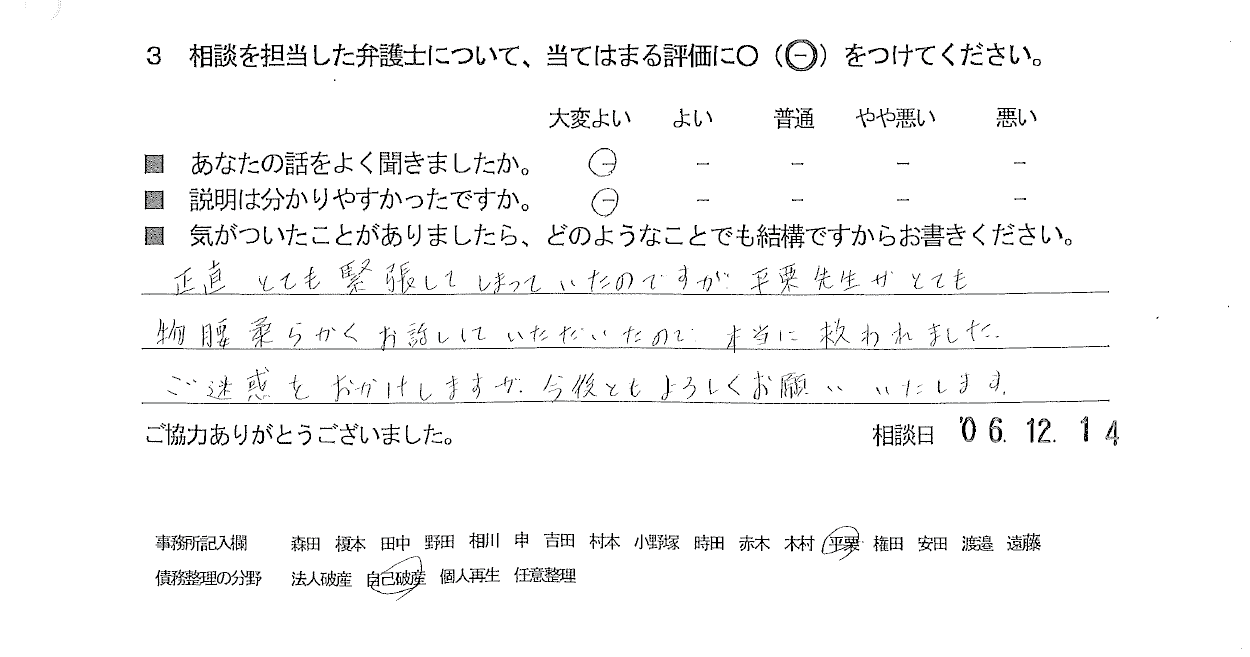 3 相談を担当した弁護士について、当てはまる評価に○（㊀）をつけてください。
大変よい よい 普通 やや悪い 悪い
■ あなたの話をよく聞きましたか。 ㊀ － － － －
■ 説明は分かりやすかったですか。 ㊀ － － － －
■ 気がついたことがありましたら、どのようなことでも結構ですからお書きください。
正直 とても緊張してしまっていたのですが 平栗先生がとても
物腰柔らかくお話ししていただいたので 本当に救われました.
ご迷惑をおかけしますが. 今後ともよろしくお願いいたします.
ご協力ありがとうございました。 相談日 '06.12.14
事務所記入欄 森田 榎本 田中 野田 相川 申 吉田 村本 小野塚 時田 赤木 木村 平栗 権田 安田 渡邉 遠藤
債務整理の分野 法人破産 自己破産 個人再生 任意整理